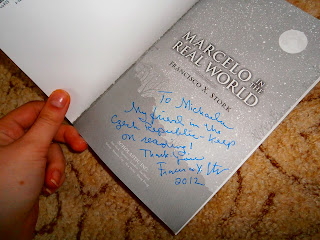 MARCELO IN THE
REAL WORLD
FRANCISCO X. STORK
To Michaela
My friend in the
Czech Republic - keep
on reading!
Thank you
Francisco X. Stork
2012